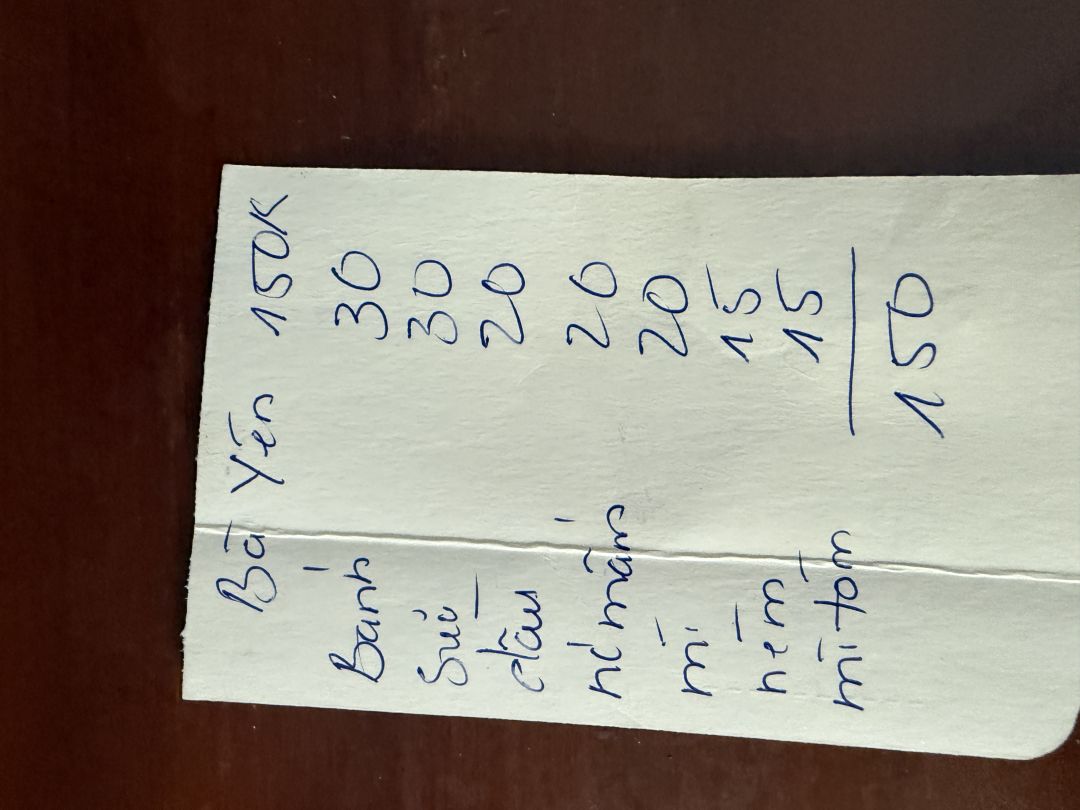 Bà Yến 150K
Bánh 30
Sữa 30
dầu 20
nc mắm 20
mì 20
nêm 15
mì tôm 15
150